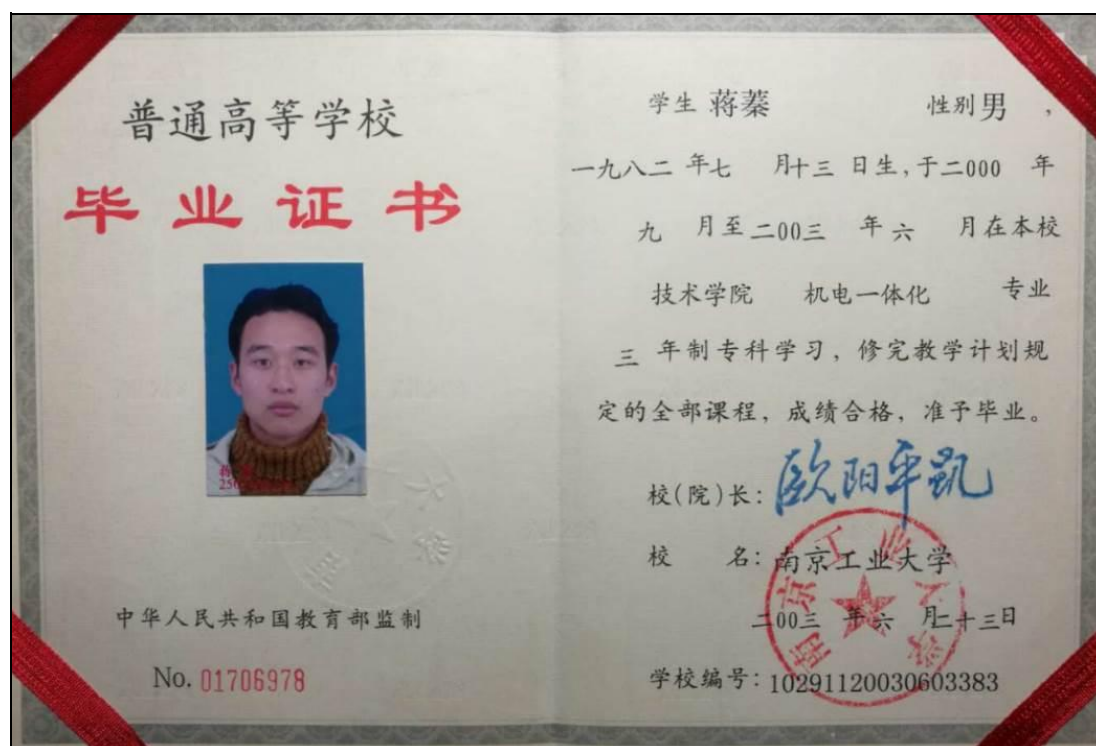 普通高等学校
毕业证书
中华人民共和国教育部监制
No. 01706978
学生 蒋蓁 性别 男 ,
一九八二 年 七 月 十三 日生,于 二000 年
九 月至 二00三 年 六 月在本校
技术学院 机电一体化 专业
三 年制专科学习,修完教学计划规
定的全部课程,成绩合格,准予毕业。
校(院)长: 欧阳平凯
校 名: 南京工业大学
二00三 年 六 月 二十三 日
学校编号: 10291120030603383
南京工业大学